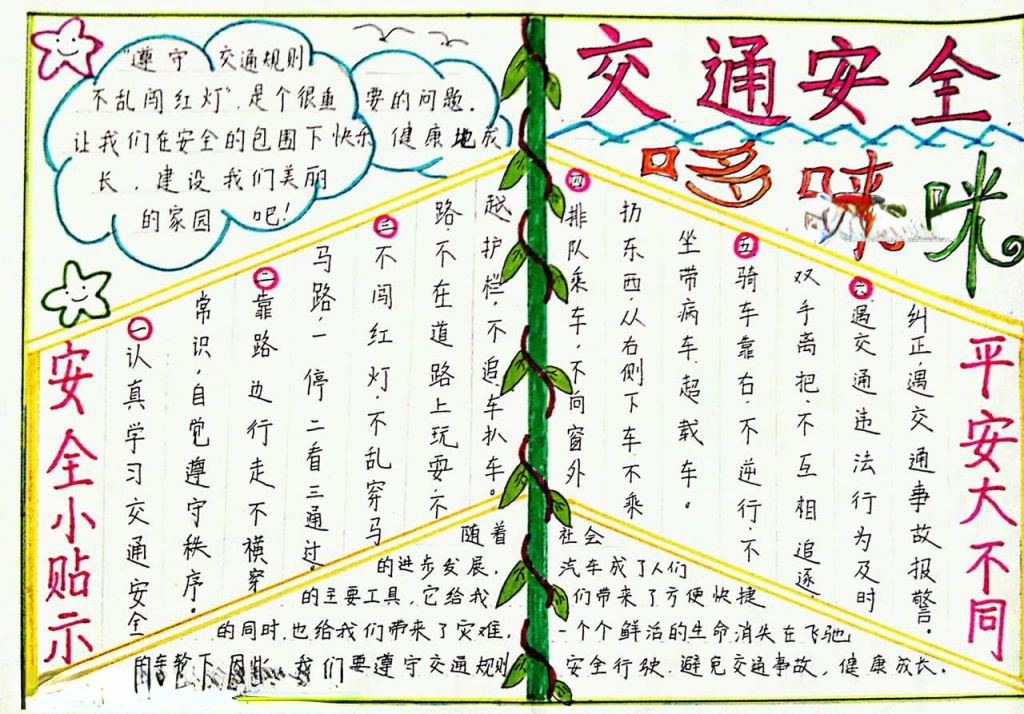 交通安全
哆唻咪
"遵守 交通规则
不乱闯红灯",是个很重 要的问题.
让我们在安全的包围下快乐 健康地成
长,建设我们美丽
的家园 吧!
安全小贴示
㊀认真学习交通安全
常识,自觉遵守秩序。
㊁靠路边行走不横穿
马路,一停二看三通过。
㊂不闯红灯,不乱穿马
路,不在道路上玩耍,不
越护栏,不追车扒车。
㊃排队乘车,不向窗外
扔东西,从右侧下车不乘
坐带病车,超载车。
㊄骑车靠右,不逆行,不
双手离把,不互相追逐。
㊅遇交通违法行为及时
纠正,遇交通事故报警。
平安大不同
随着 社会
的进步发展, 汽车成了人们
的主要工具,它给我 们带来了方便快捷
的同时,也给我们带来了灾难, 一个个鲜活的生命消失在飞驰
的 下 因此 我们要遵守交通规则 安全行驶,避免交通事故,健康成长.